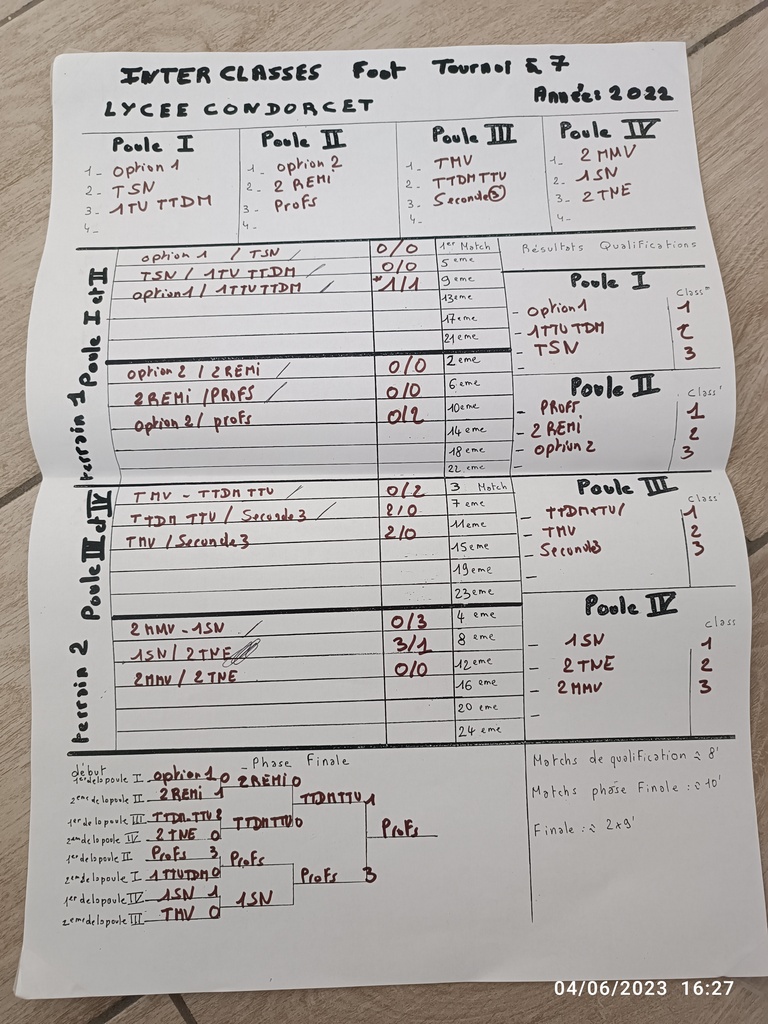 INTER CLASSES Foot Tournoi à 7
LYCEE CONDORCET Années 2022
Poule I
1_ option 1
2_ TSN
3_ 1TU TTDM
4_
Poule II
1_ option 2
2_ 2 REMI
3_ Profs
4_
Poule III
1_ TMV
2_ TTDM TTU
3_ Seconde 3
4_
Poule IV
1_ 2 MMV
2_ 1SN
3_ 2 TNE
4_
terrain 1 Poule I et II
option 1 / TSN 0/0 1er Match
TSN / 1TU TTDM 0/0 5 eme
option1 / 1TTUTTDM *1/1 9 eme
13 eme
17 eme
21 eme
option 2 / 2REMI 0/0 2 eme
2REMI / PROFS 0/0 6 eme
option 2 / profs 0/2 10 eme
14 eme
18 eme
22 eme
terrain 2 Poule III et IV
TMV - TTDM TTU 0/2 3 Match
TTDM TTU / Seconde 3 2/0 7 eme
TMV / Seconde 3 2/0 11 eme
15 eme
19 eme
23 eme
2 MMV - 1SN 0/3 4 eme
1SN / 2TNE 3/1 8 eme
2MMV / 2 TNE 0/0 12 eme
16 eme
20 eme
24 eme
Résultats Qualifications
Poule I Class
- option 1 1
- 1TTUTDM 2
- TSN 3
-
Poule II Class
- PROFS 1
- 2 REMI 2
- option 2 3
Poule III Class
- TTDMTTU/ 1
- TMV 2
- Seconde3 3
-
Poule IV class
- 1SN 1
- 2TNE 2
- 2MMV 3
-
début - Phase Finale
1er de la poule I option 1 0
2eme de la poule II 2REMI 1
1er de la poule III TTDM-TTU 2
2eme de la poule IV 2TNE 0
1er de la poule II Profs 3
2eme de la poule I 1TTUTDM 0
1er de la poule IV 1SN 1
2eme de la poule III TMV 0
2REMI 0
TTDMTTU 0
Profs
1SN
TTDMTTU 1
Profs 3
Profs
Matchs de qualification : 8'
Matchs phase Finale :: 10'
Finale :: 2x9'
04/06/2023 16:27